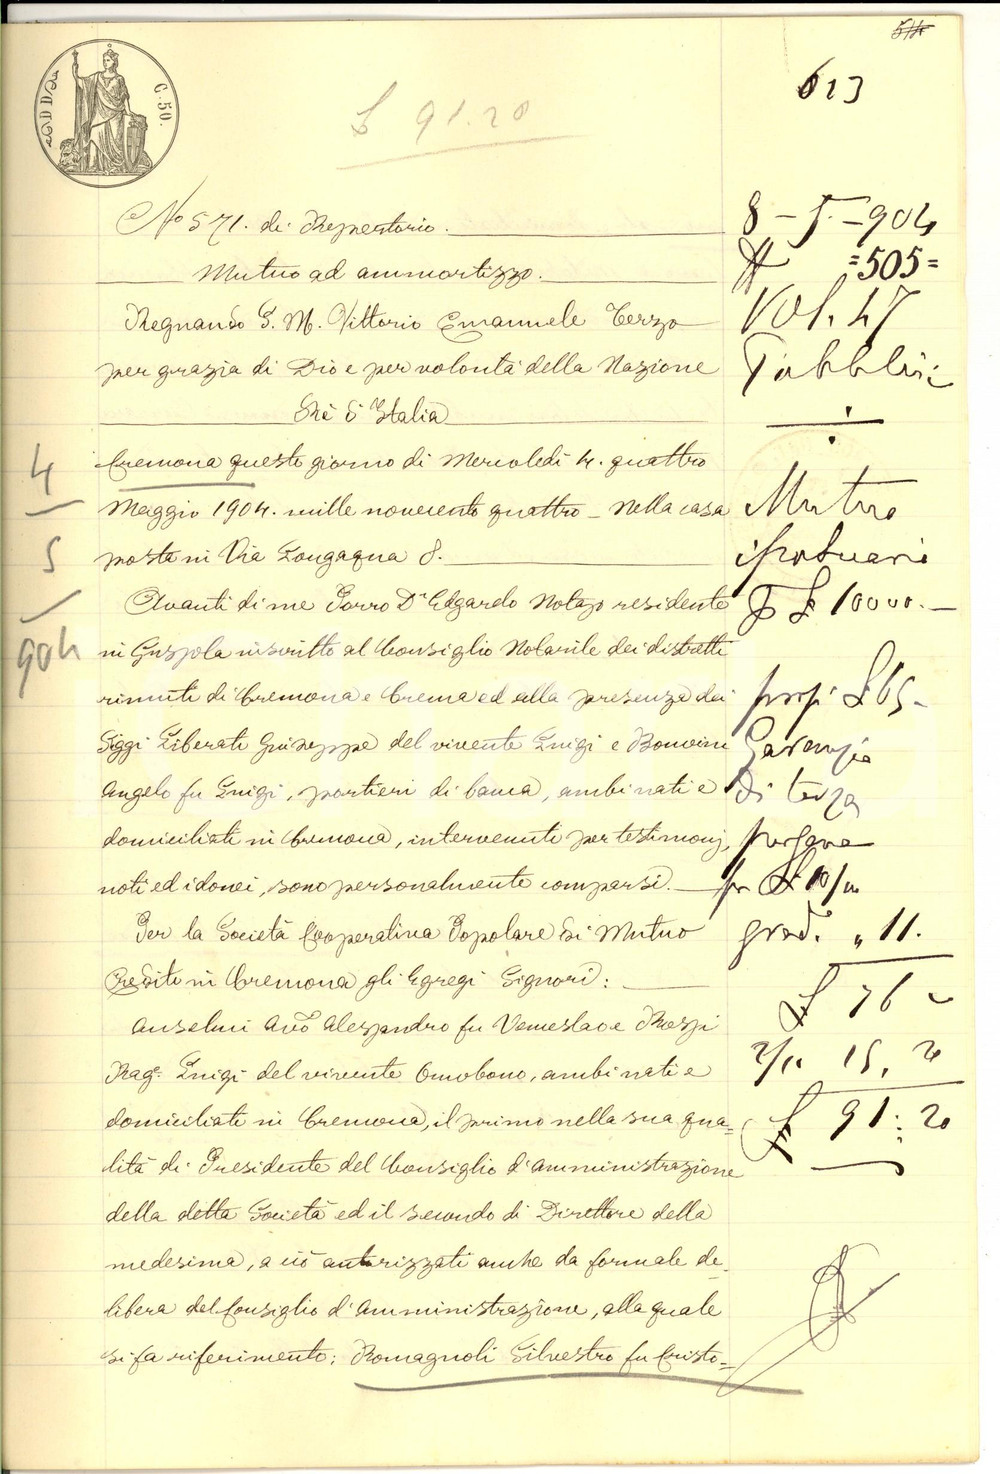 613
C. 50.
£ 91.20
No 571. di Repertorio.
Mutuo ad ammortizzo.
Regnando S. M. Vittorio Emanuele Terzo
per grazia di Dio e per volontà della Nazione
Rè d'Italia
Cremona questo giorno di Mercoledì 4. quattro
Maggio 1904. mille novecento quattro _ Nella casa
posta in Via Longaqua 8.
Avanti di me Porro Dr Edgardo Notajo residente
in Gussola inscritto al Consiglio Notarile dei distretti
riuniti di Cremona e Crema ed alla presenza dei
Siggi Liberati Giuseppe del vivente Luigi e Bonvini
Angelo fu Luigi, portieri di banca, ambi nati e
domiciliati in Cremona, intervenuti per testimonj,
noti ed idonei, sono personalmente comparsi.
Per la Società Cooperativa Popolare di Mutuo
Credito in Cremona gli Egregi Signori:
Anselmi Avo Alessandro fu Venceslao e
Rag. Luigi del vivente Omobono, ambi nati e
domiciliati in Cremona, il primo nella sua qua=
lità di Presidente del Consiglio d'amministrazione
della detta Società ed il secondo di Direttore della
medesima, a ciò autorizzati anche da formale de_
libera del Consiglio d'amministrazione, alla quale
si fa riferimento; Romagnoli Silvestro fu Cristo=
4
5
904
8 - 5 - 904
=505=
Vol. 47
Pubblici
Mutuo
ipotecario
£ 10000.—
prop. £ 65-
Garanzia
di terza
persona
per £ 10/m
grad. " 11.
£ 76
2/10 15, 20
£ 91: 20